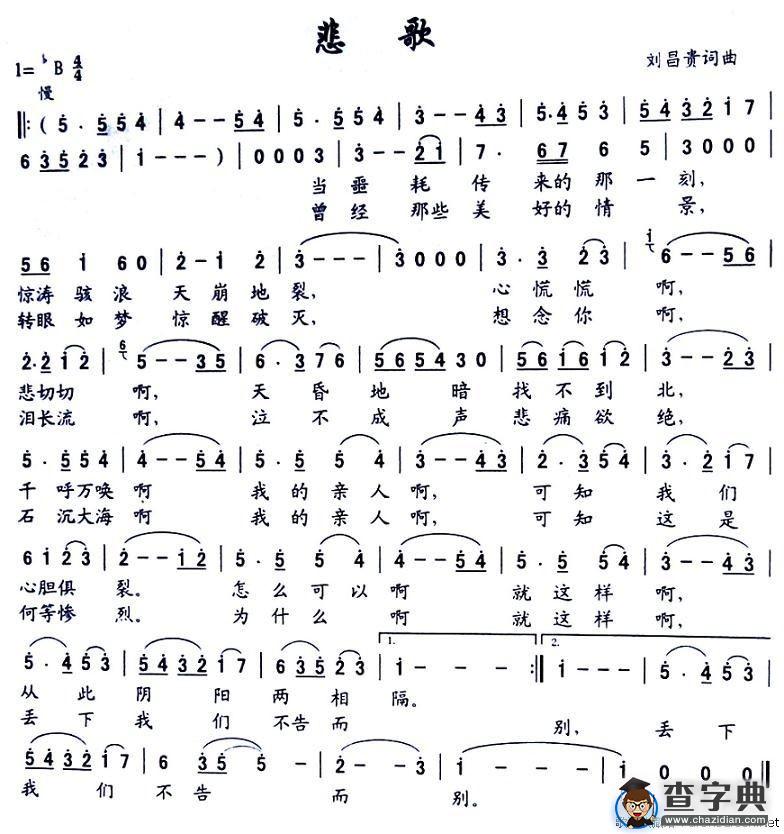 悲歌
1=♭B 4/4
刘昌贵词曲
慢
‖:( 5·5 5 4 | 4 - - 5 4 | 5·5 5 4 | 3 - - 4 3 | 5·4 5 3 5 | 5 4 3 2 1 7 |
6 3 5 2 3 | 1 - - - ) | 0 0 0 3 | 3 - - 2 1 | 7· 6 7 6 5 | 3 0 0 0 |
当噩耗传来的那一刻,
曾经那些美好的情景,
5 6 1 6 0 | 2 - 1 2 | 3 - - - | 3 0 0 0 | 3·3 2 3 | 6 - - 5 6 |
惊涛骇浪天崩地裂,心慌慌啊,
转眼如梦惊醒破灭,想念你啊,
2·2 1 2 | 5 - - 3 5 | 6·3 7 6 | 5 6 5 4 3 0 | 5 6 1 6 1 2 | 3 - - 2 3 |
悲切切啊,天昏地暗找不到北,
泪长流啊,泣不成声悲痛欲绝,
5·5 5 4 | 4 - - 5 4 | 5·5 5 4 | 3 - - 4 3 | 2·3 5 4 | 3·2 1 7 |
千呼万唤啊我的亲人啊,可知我们
石沉大海啊我的亲人啊,可知这是
6 1 2 3 | 2 - - 1 2 | 5·5 5 4 | 4 - - 5 4 | 5·5 5 4 | 3 - - 4 3 |
心胆俱裂。怎么可以啊就这样啊,
何等惨烈。为什么啊就这样啊,
5·4 5 3 | 5 4 3 2 1 7 | 6 3 5 2 3 | 1. 1 - - - :‖ 2. 1 - - - | 5·4 5 3 |
从此阴阳两相隔。
丢下我们不告而别,丢下
5 4 3 2 1 7 | 6 3 5 5 - | 2 - - 3 | 1 - - - | 1 0 0 0 ‖
我们不告而别。
查字典
www.chazidian.com